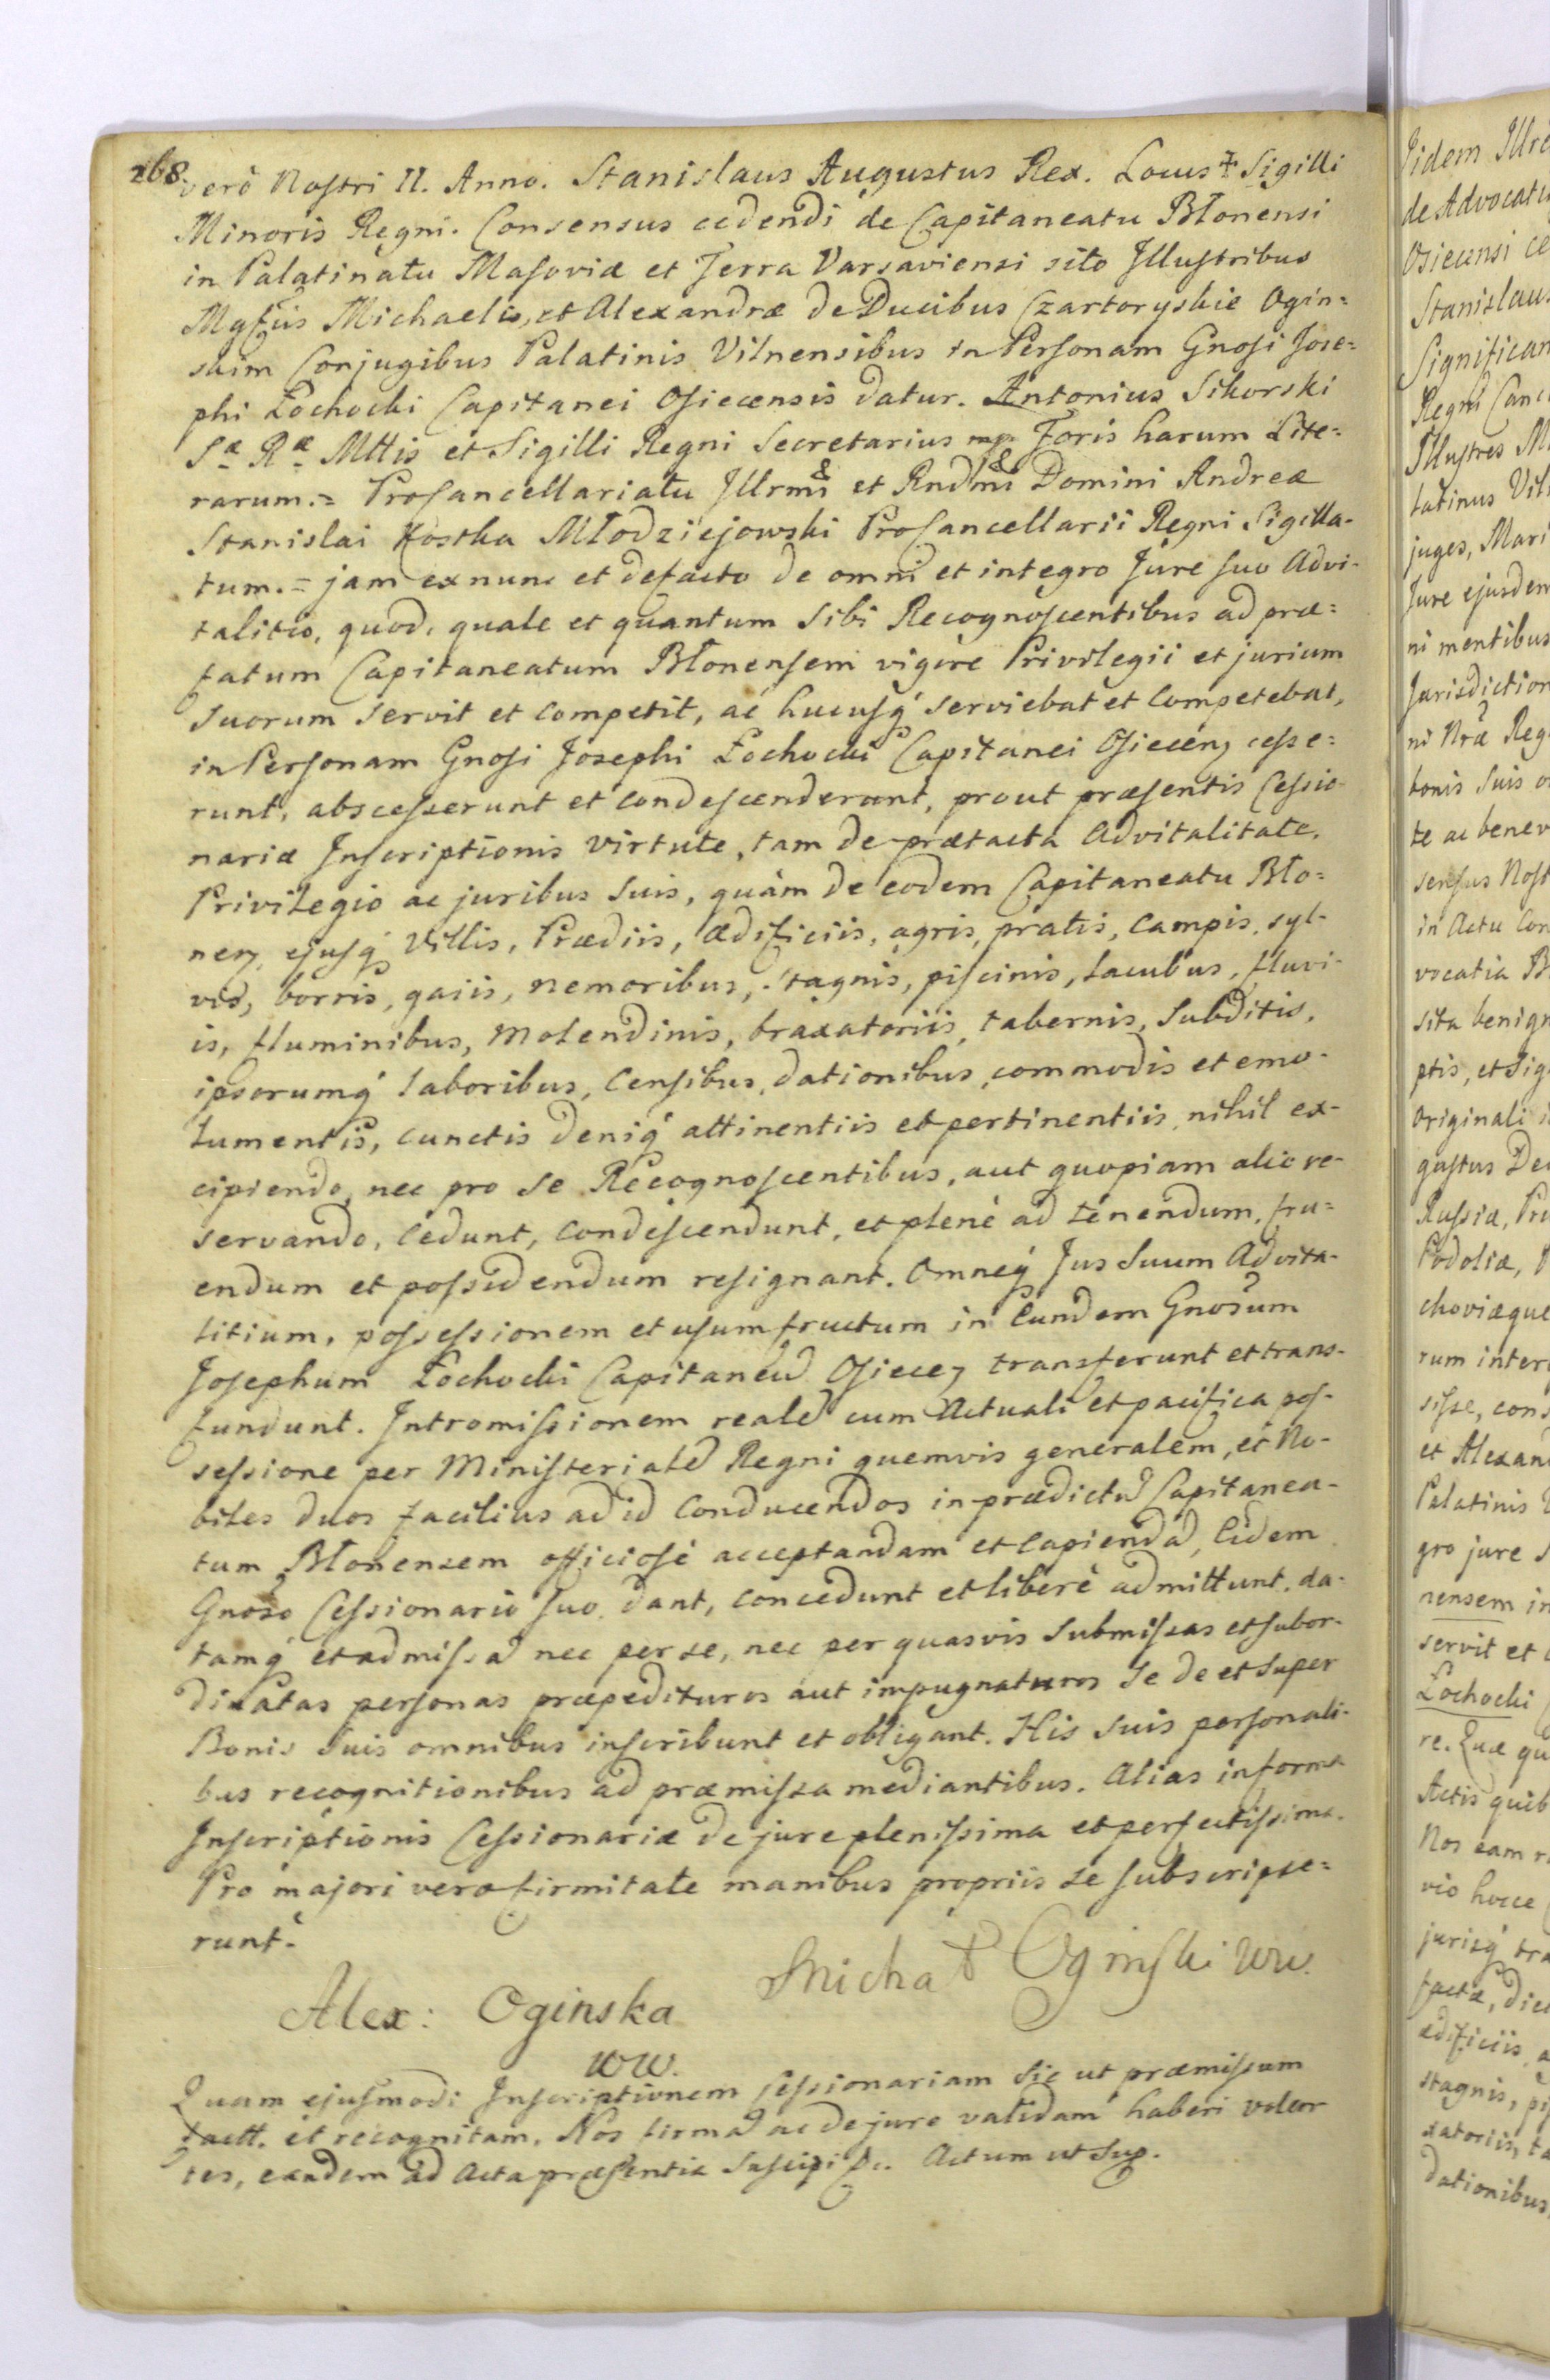 268.
verò Nostri II. Anno. Stanislaus Augustus Rex. Locus ✝ Sigilli
Minoris Regni. Consensus cedendi de Capitaneatu Błonensi
in Palatinatu Masoviæ et Terra Varsaviensi sito Illustribus
Mgfcis Michaelis, et Alexandræ de Ducibus Czartoryskie Ogin=
skim Conjugibus Palatinis Vilnensibus in Personam Gnosi Jose=
phi Łochocki Capitanei Osiecensis datur. Antonius Sikorski
Sæ Ræ Mttis et Sigilli Regni Secretarius mp. Foris harum Lite=
rarum.= ProCancellariatu Illrmi & et Rndmi & Domini Andreæ
Stanislai Kostka Młodziejowski ProCancellarii Regni Sigilla-
tum.= jam ex nunc et defacto de omni et integro Jure suo Advi-
talitio, quod, quale et quantum Sibi Recognoscentibus ad præ=
fatum Capitaneatum Błonensem vigore Privilegii et jurium
suorum servit et competit, ac hucusq́ serviebat et competebat,
in Personam Gnosi Josephi Łochocki Capitanei Osiecenz cesse=
runt, abscesserunt et condescenderunt, prout præsentis Cessio-
nariæ Inscriptionis virtute, tam de prætacta Advitalitate,
Privilegio ac juribus suis, quàm de eodem Capitaneatu Bło=
nenz, ejusq́ Villis, Prædiis, ædificiis, agris, pratis, campis, syl-
vis, borris, gaiis, nemoribus, stagnis, piscinis, lacubus, fluvi-
is, fluminibus, molendinis, braxatoriis, tabernis, subditis,
ipsorumq́ laboribus, Censibus, dationibus, commodis et emo-
lumentis, cunctis deniq́ attinentiis et pertinentiis, nihil ex-
cipiendo, nec pro se Recognoscentibus, aut quopiam alio re-
servando, cedunt, condescendunt, et plenè ad tenendum, fru=
endum et possidendum resignant. Omneq́ Jus Suum Advita-
litium, possessionem et usumfructum in Eundem Gnosum
Josephum Łochocki Capitaneū Osiecez transferunt et trans-
fundunt. Intromissionem realē cum Actuali et pacifica pos-
sessione per Ministerialē Regni quemvis generalem, et No-
biles duos facilius ad id conducendos in prædictū Capitanea-
tum Błonensem officiosè acceptandam et capiendā, Eidem
Gnoso Cessionario suo dant, concedunt et liberè admittunt, da-
tamq́ et admissā nec per se, nec per quasvis submissas et subor-
dinatas personas præpedituros aut impugnaturos Se de et super
Bonis suis omnibus inscribunt et obligant. His suis personali-
bus recognitionibus ad præmissa mediantibus. Alias in forma
Inscriptionis Cessionariæ de jure plenissima et perfectissima.
Pro majori vero firmitate manibus propriis se subscripse=
runt.
Michał Ogiński WW.
Alex: Oginska
WW.
Quam ejusmodi Inscriptionem Cessionariam sic ut præmissum
factt. et recognitam, Nos firmā ac de jure validam haberi volen
tes, eandem ad Acta præsentia suscipi &c. Actum ut Sup.
Iidem Illr
de Advocatu
Osiecensi ce
Stanislaus
Significan
Regni Canc
Illustres M
latinus Vil
juges, Mari
Jure ejusdem
ni mentibus
Jurisdiction
ni Nræ Reg
bonis suis
te ac benev
sensus Nost
in Actu Con
vocatia B
sita benign
ptis, et Sig
Originali
gustus De
Russiæ, Pru
Podoliæ,
choviæque
rum inter
sisse, cons
et Alexan
Palatinis
gro jure s
nensem in
servit et
Łochocki
re. Quæ qu
Actis quib
Nos eam
vio hocce
jurisq́ tra
factæ, dic
ædificiis, a
stagnis, pi
xatoriis, ta
dationibus,